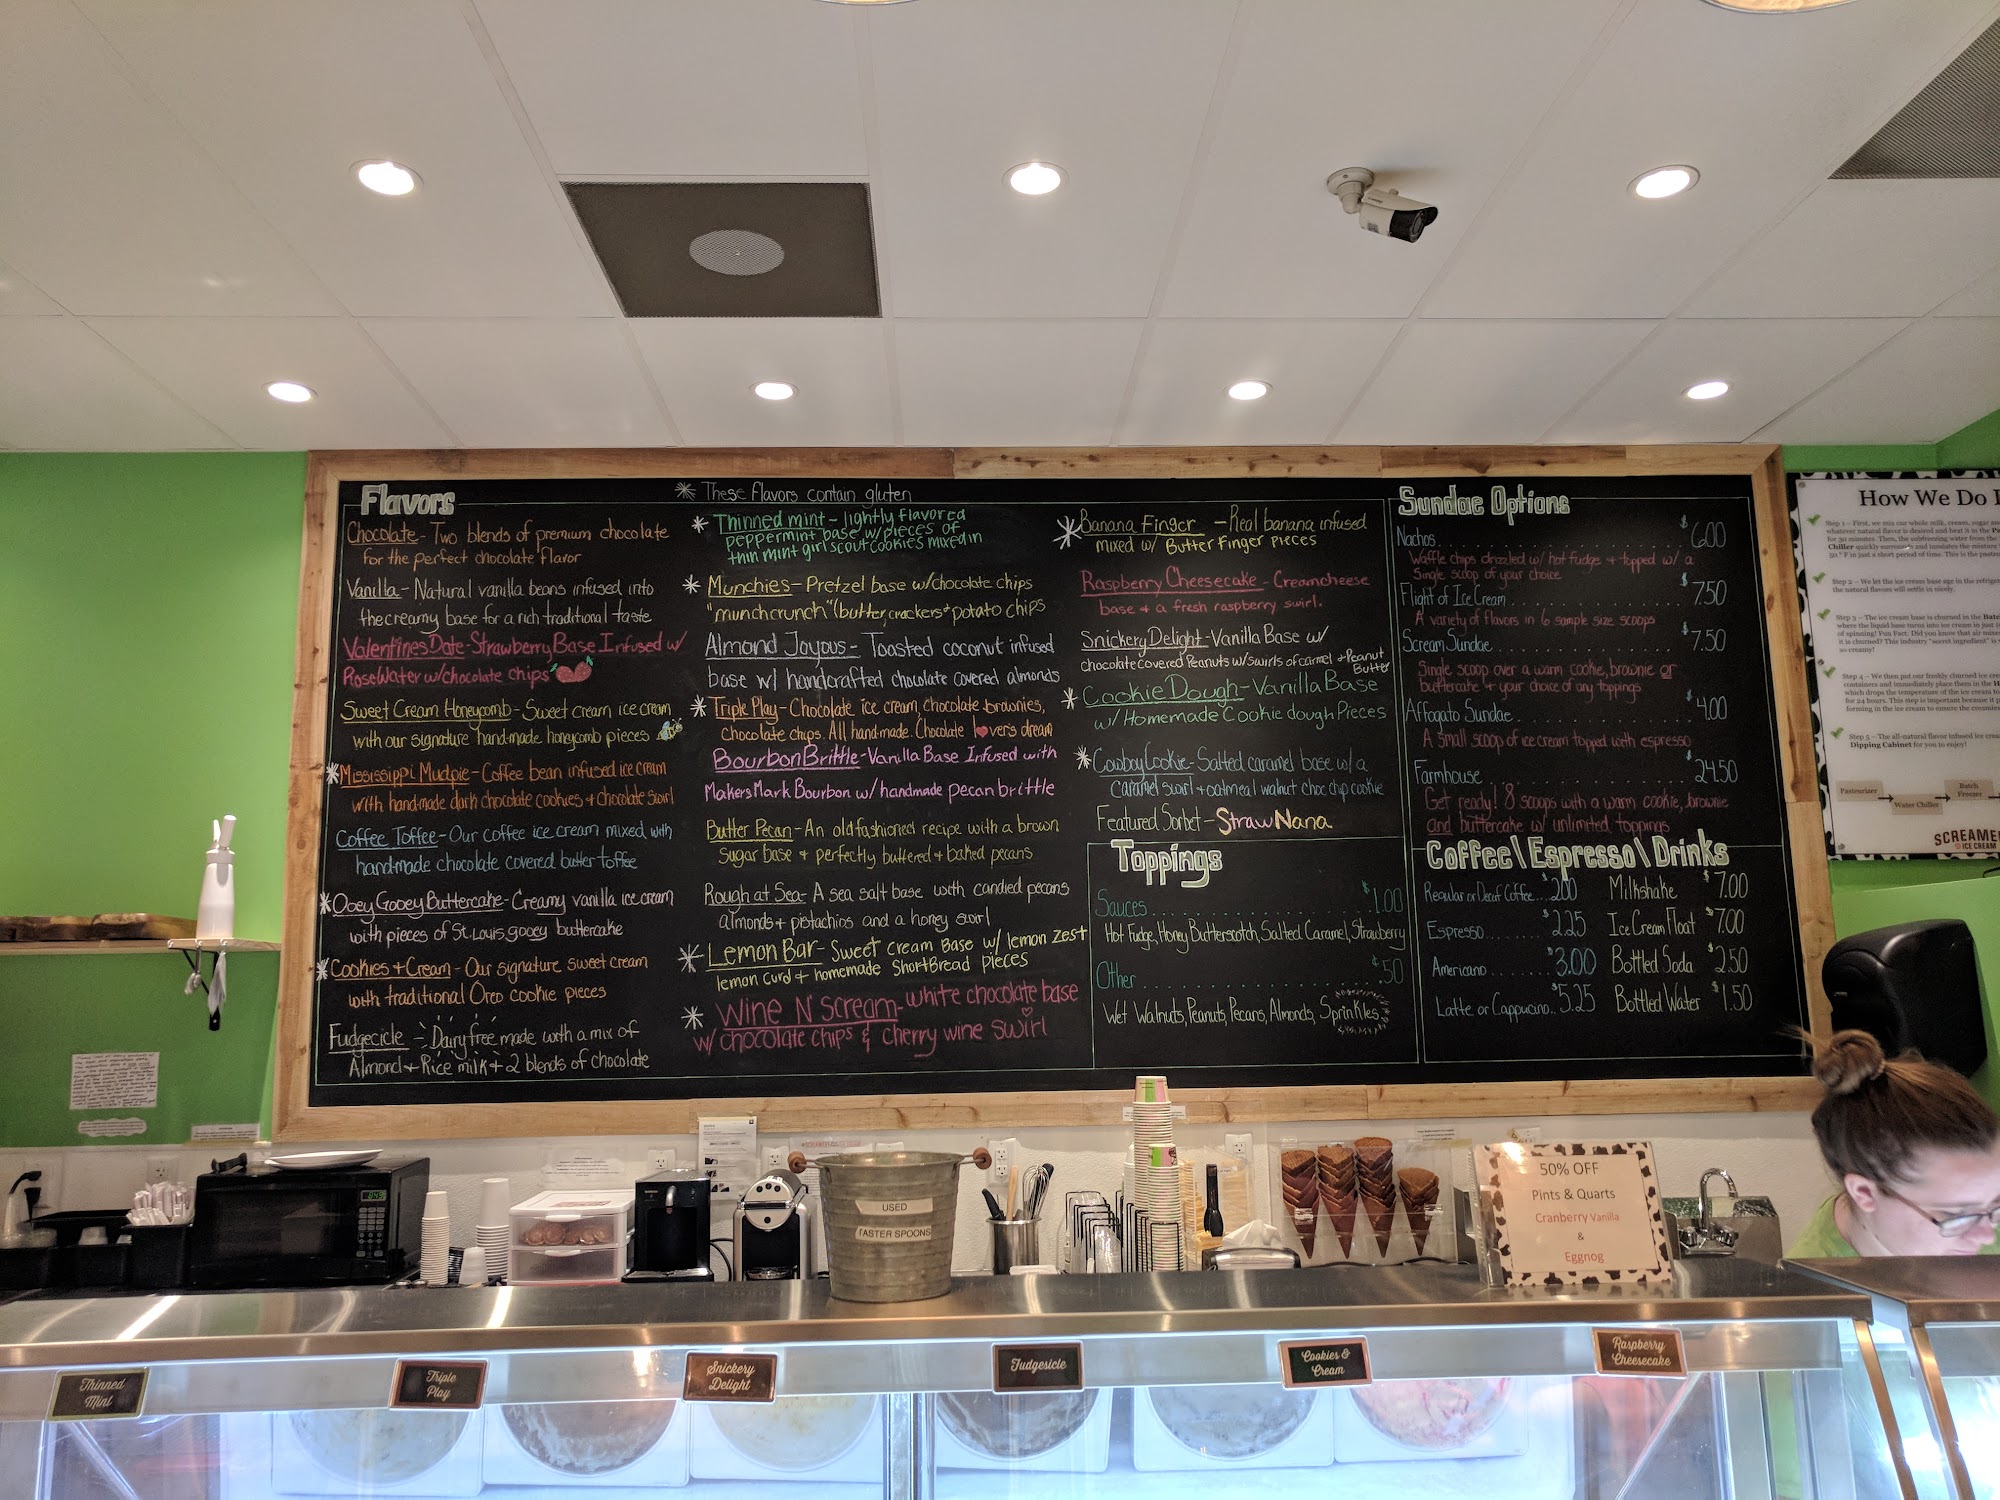 Flavors
Chocolate - Two blends of premium chocolate
for the perfect chocolate flavor
Vanilla - Natural vanilla beans infused into
the creamy base for a rich traditional taste
Valentines Date - Strawberry Base Infused w/
RoseWater w/chocolate chips
Sweet Cream Honeycomb - Sweet cream ice cream
with our signature hand-made honeycomb pieces
* Mississippi Mudpie - Coffee bean infused ice cream
with handmade dark chocolate cookies + chocolate swirl
Coffee Toffee - Our coffee ice cream mixed with
handmade chocolate covered butter toffee
* Ooey Gooey Buttercake - Creamy vanilla ice cream
with pieces of St. Louis gooey buttercake
* Cookies + Cream - Our signature sweet cream
with traditional Oreo cookie pieces
Fudgecicle - Dairy free made with a mix of
Almond + Rice milk + 2 blends of chocolate
* These flavors contain gluten
* Thinned mint - lightly flavored
peppermint base w/pieces of
thin mint girl scout cookies mixed in
* Munchies - Pretzel base w/chocolate chips
"munchcrunch" (butter, crackers + potato chips
Almond Joyous - Toasted coconut infused
base w/ handcrafted chocolate covered almonds
* Triple Play - Chocolate ice cream, chocolate brownies,
chocolate chips. All handmade. Chocolate l♥vers dream
Bourbon Brittle - Vanilla Base Infused with
Makers Mark Bourbon w/ handmade pecan brittle
Butter Pecan - An old fashioned recipe with a brown
Sugar base + perfectly buttered + baked pecans
Rough at Sea - A sea salt base with candied pecans
almonds + pistachios and a honey swirl
* Lemon Bar - Sweet cream Base w/ lemon zest
lemon curd + homemade ShortBread pieces
* Wine N' Scream - white chocolate base
w/ chocolate chips & cherry wine swirl
* Banana Finger - Real banana infused
mixed w/ Butter Finger pieces
Raspberry Cheesecake - Creamcheese
base + a fresh raspberry swirl.
Snickery Delight - Vanilla Base w/
chocolate covered Peanuts w/swirls of carmel + Peanut
Butter
* Cookie Dough - Vanilla Base
w/ Homemade Cookie dough Pieces
* Cowboy Cookie - Salted caramel base w/a
Caramel swirl + oatmeal walnut choc chip cookie
Featured Sorbet - StrawNana
Toppings
Sauces $1.00
Hot Fudge, Honey Butterscotch, Salted Caramel, Strawberry
Other $.50
Wet Walnuts, Peanuts, Pecans, Almonds, Sprinkles
Sundae Options
Nachos $6.00
Waffle chips drizzled w/ hot fudge + topped w/ a
Single scoop of your choice
Flight of Ice Cream $7.50
A variety of flavors in 6 sample size scoops
Scream Sundae $7.50
Single scoop over a warm cookie, brownie or
buttercake + your choice of any toppings
Affogato Sundae $4.00
A small scoop of ice cream topped with espresso
Farmhouse $24.50
Get ready! 8 scoops with a warm cookie, brownie
and buttercake w/ unlimited toppings
Coffee\Espresso\Drinks
Regular or Decaf Coffee $2.00
Espresso $2.25
Americano $3.00
Latte or Cappucino $5.25
Milkshake $7.00
Ice Cream Float $7.00
Bottled Soda $2.50
Bottled Water $1.50
How We Do
Pasteurizer
Water Chiller
Batch
Freezer
SCREAME
ICE CREAM
USED
TASTER SPOONS
50% OFF
Pints & Quarts
Cranberry Vanilla
&
Eggnog
Thinned
Mint
Triple
Play
Snickery
Delight
Fudgesicle
Cookies &
Cream
Raspberry
Cheesecake